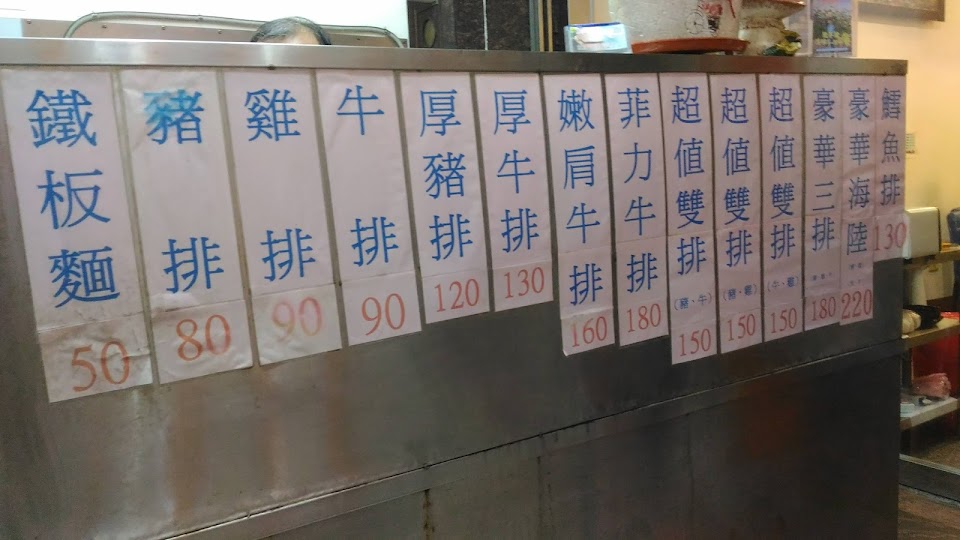 鐵板麵 50
豬排 80
雞排 90
牛排 90
厚豬排 120
厚牛排 130
嫩肩牛排 160
菲力牛排 180
超值雙排 (豬、牛) 150
超值雙排 (豬、雞) 150
超值雙排 (牛、雞) 150
豪華三排 180
豪華海陸 220
鱈魚排 130